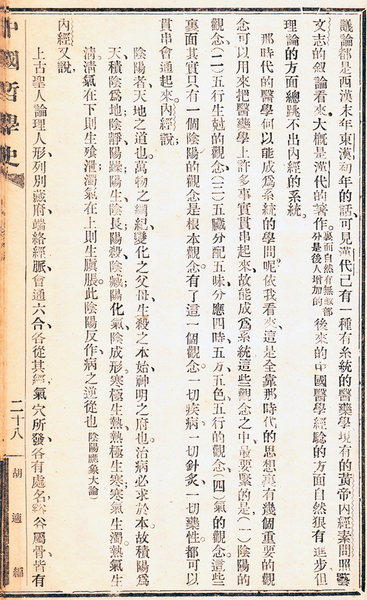 議論都是西漢末年東漢初年的話可見漢代已有一種有系統的醫藥學現有的黃帝內經素問照藝
文志的叙論看來大概是漢代的著作裏面自然有無數部分是後人增加的後來的中國醫學經驗的方面自然狠有進步但
理論的方面總跳不出內經的系統。
那時代的醫學何以能成爲系統的學問呢依我看來這是全靠那時代的思想眞有幾個重要的觀
念可以用來把醫藥學上許多事實貫串起來故能成爲系統這些觀念之中最要緊的是(一)陰陽的
觀念(二)五行生尅的觀念(三)五臟分配五味分應四時五方五色五行的觀念(四)氣的觀念這些
裏面其實只有一個陰陽的觀念是根本觀念有了這一個觀念一切疾病一切針炙一切藥性都可以
貫串會通起來。內經說
陰陽者天地之道也萬物之綱紀變化之父母生殺之本始神明之府也。治病必求於本故積陽爲
天積陰爲地陰靜陽躁陽生陰長陽殺陰藏陽化氣陰成形寒極生熱熱極生寒寒氣生濁熱氣生
淸淸氣在下則生飱泄濁氣在上則生䐜脹。此陰陽反作病之逆從也(陰陽應象大論)
內經又說
上古聖人論理人形列別藏府端絡經脈會通六合各從其經氣穴所發各有處名谿谷屬骨皆有
中國哲學史
二十八
胡適編